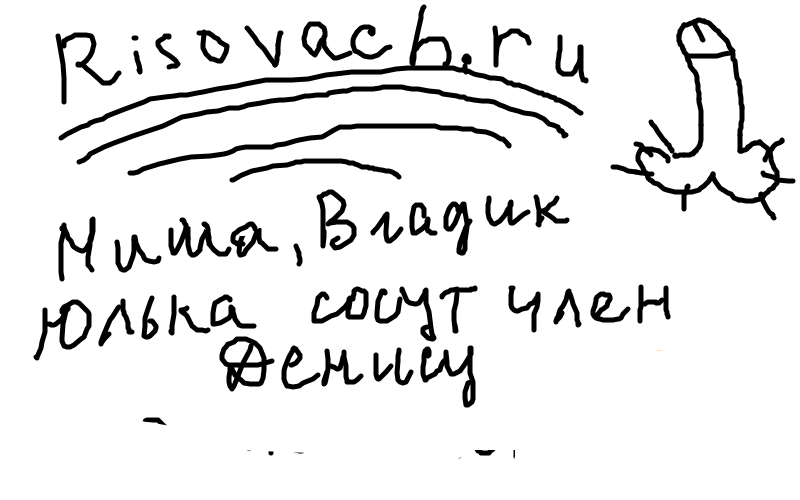 Risovach.ru
Миша, Владик
Юлька сосут член
Денису